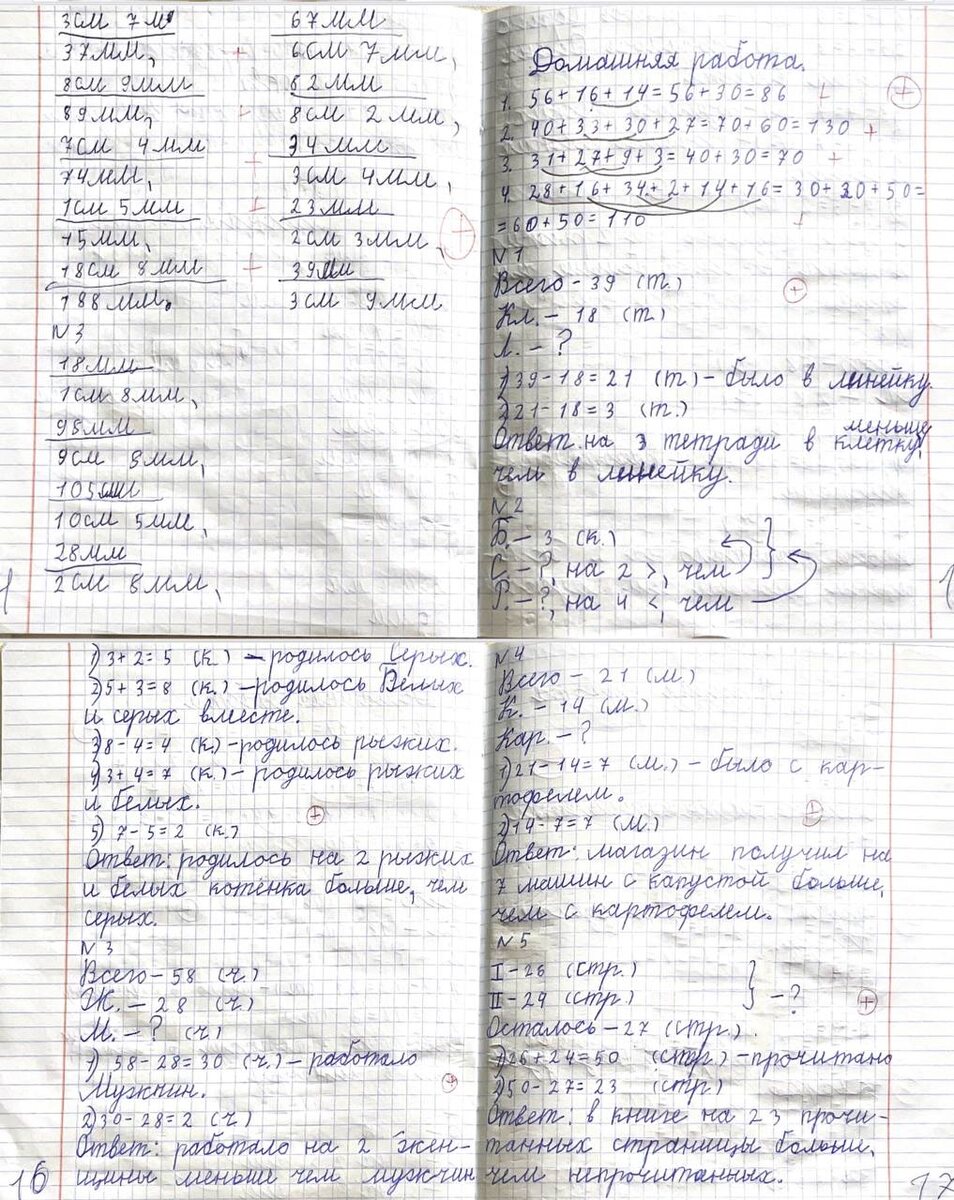 3см 7м
37мм,
8см 9мм
89мм,
7см 4мм
74мм,
1см 5мм
15мм,
18см 8мм
188мм.
N3
18мм
1см 8мм,
9см 3мм,
105мм
10см 5мм,
28мм
2см 8мм,
67мм
6см 7мм,
82мм
8см 2мм,
34мм
3см 4мм,
23мм
2см 3мм,
39мм
3см 9мм
Домашняя работа.
1. 56+16+14=56+30=86
2. 40+33+30+27=70+60=130
3. 31+27+9+3=40+30=70
4. 28+16+34+2+14+16=30+30+50=
=60+50=110
N1
Всего-39 (т.)
Кл.-18 (т.)
Л.-?
1)39-18=21 (т)-было в линейку.
2)21-18=3 (т.)
Ответ: на 3 тетради в клетку меньше,
чем в линейку.
N2
Б.-3 (к.)
С.-?, на 2 >, чем
Р.-?, на 4 <, чем
1)3+2=5 (к.)-родилось серых.
2)5+3=8 (к.)-родилось белых
и серых вместе.
3)8-4=4 (к.)-родилось рыжих.
4)3+4=7 (к.)-родилось рыжих
и белых.
5) 7-5=2 (к.)
Ответ: родилось на 2 рыжих
и белых котёнка больше, чем
серых.
N3
Всего-58 (ч.)
Ж.-28 (ч.)
М.-? (ч)
1) 58-28=30 (ч.)-работало
Мужчин.
2)30-28=2 (ч)
Ответ: работало на 2 жен-
щины меньше чем мужчин
16
N4
Всего-21 (м.)
К.-14 (м.)
Кар.-?
1)21-14=7 (м.)-было с кар-
тофелем.
2)14-7=7 (м.)
Ответ: магазин получил на
7 машин с капустой больше,
чем с картофелем.
N5
I-26 (стр.)
II-24 (стр.)
-?
Осталось-27 (стр.).
1)26+24=50 (стр.)-прочитано
2)50-27=23 (стр.)
Ответ: в книге на 23 прочи-
танных страницы больше,
чем непрочитанных.
17